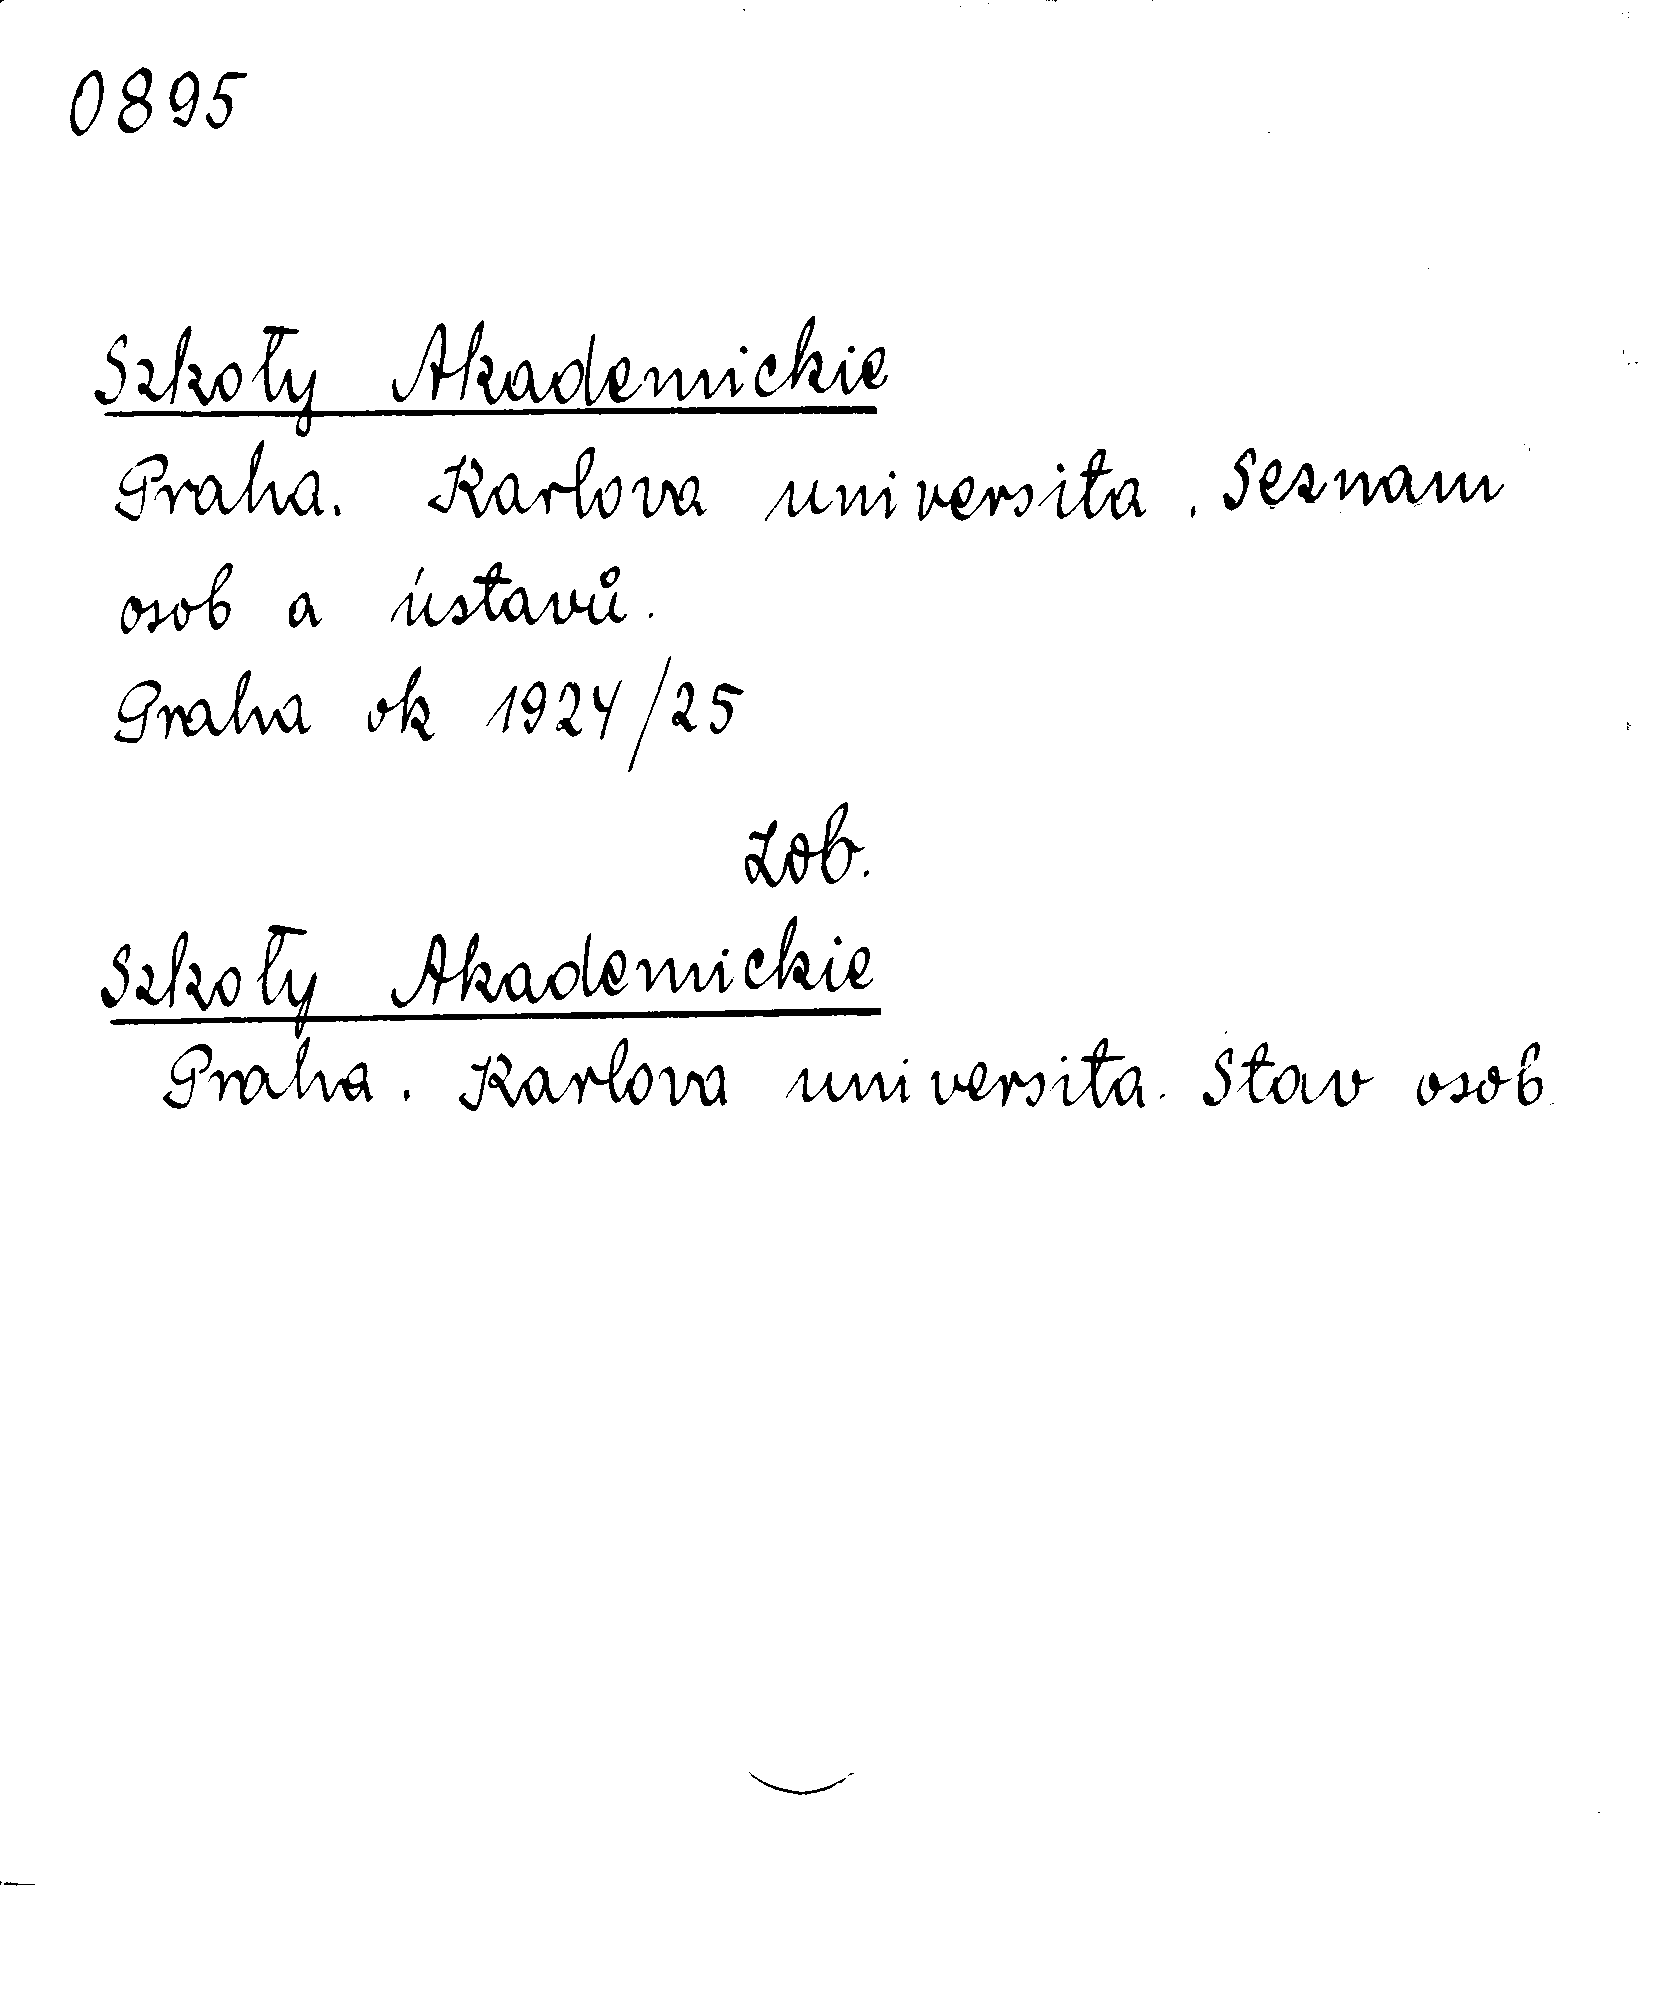 0895
Szkoły Akademickie
Praha. Karlova universita. Seznam
osob a ústavů.
Praha ok 1924/25
Zob.
Szkoły Akademickie
Praha. Karlova universita. Stav osob